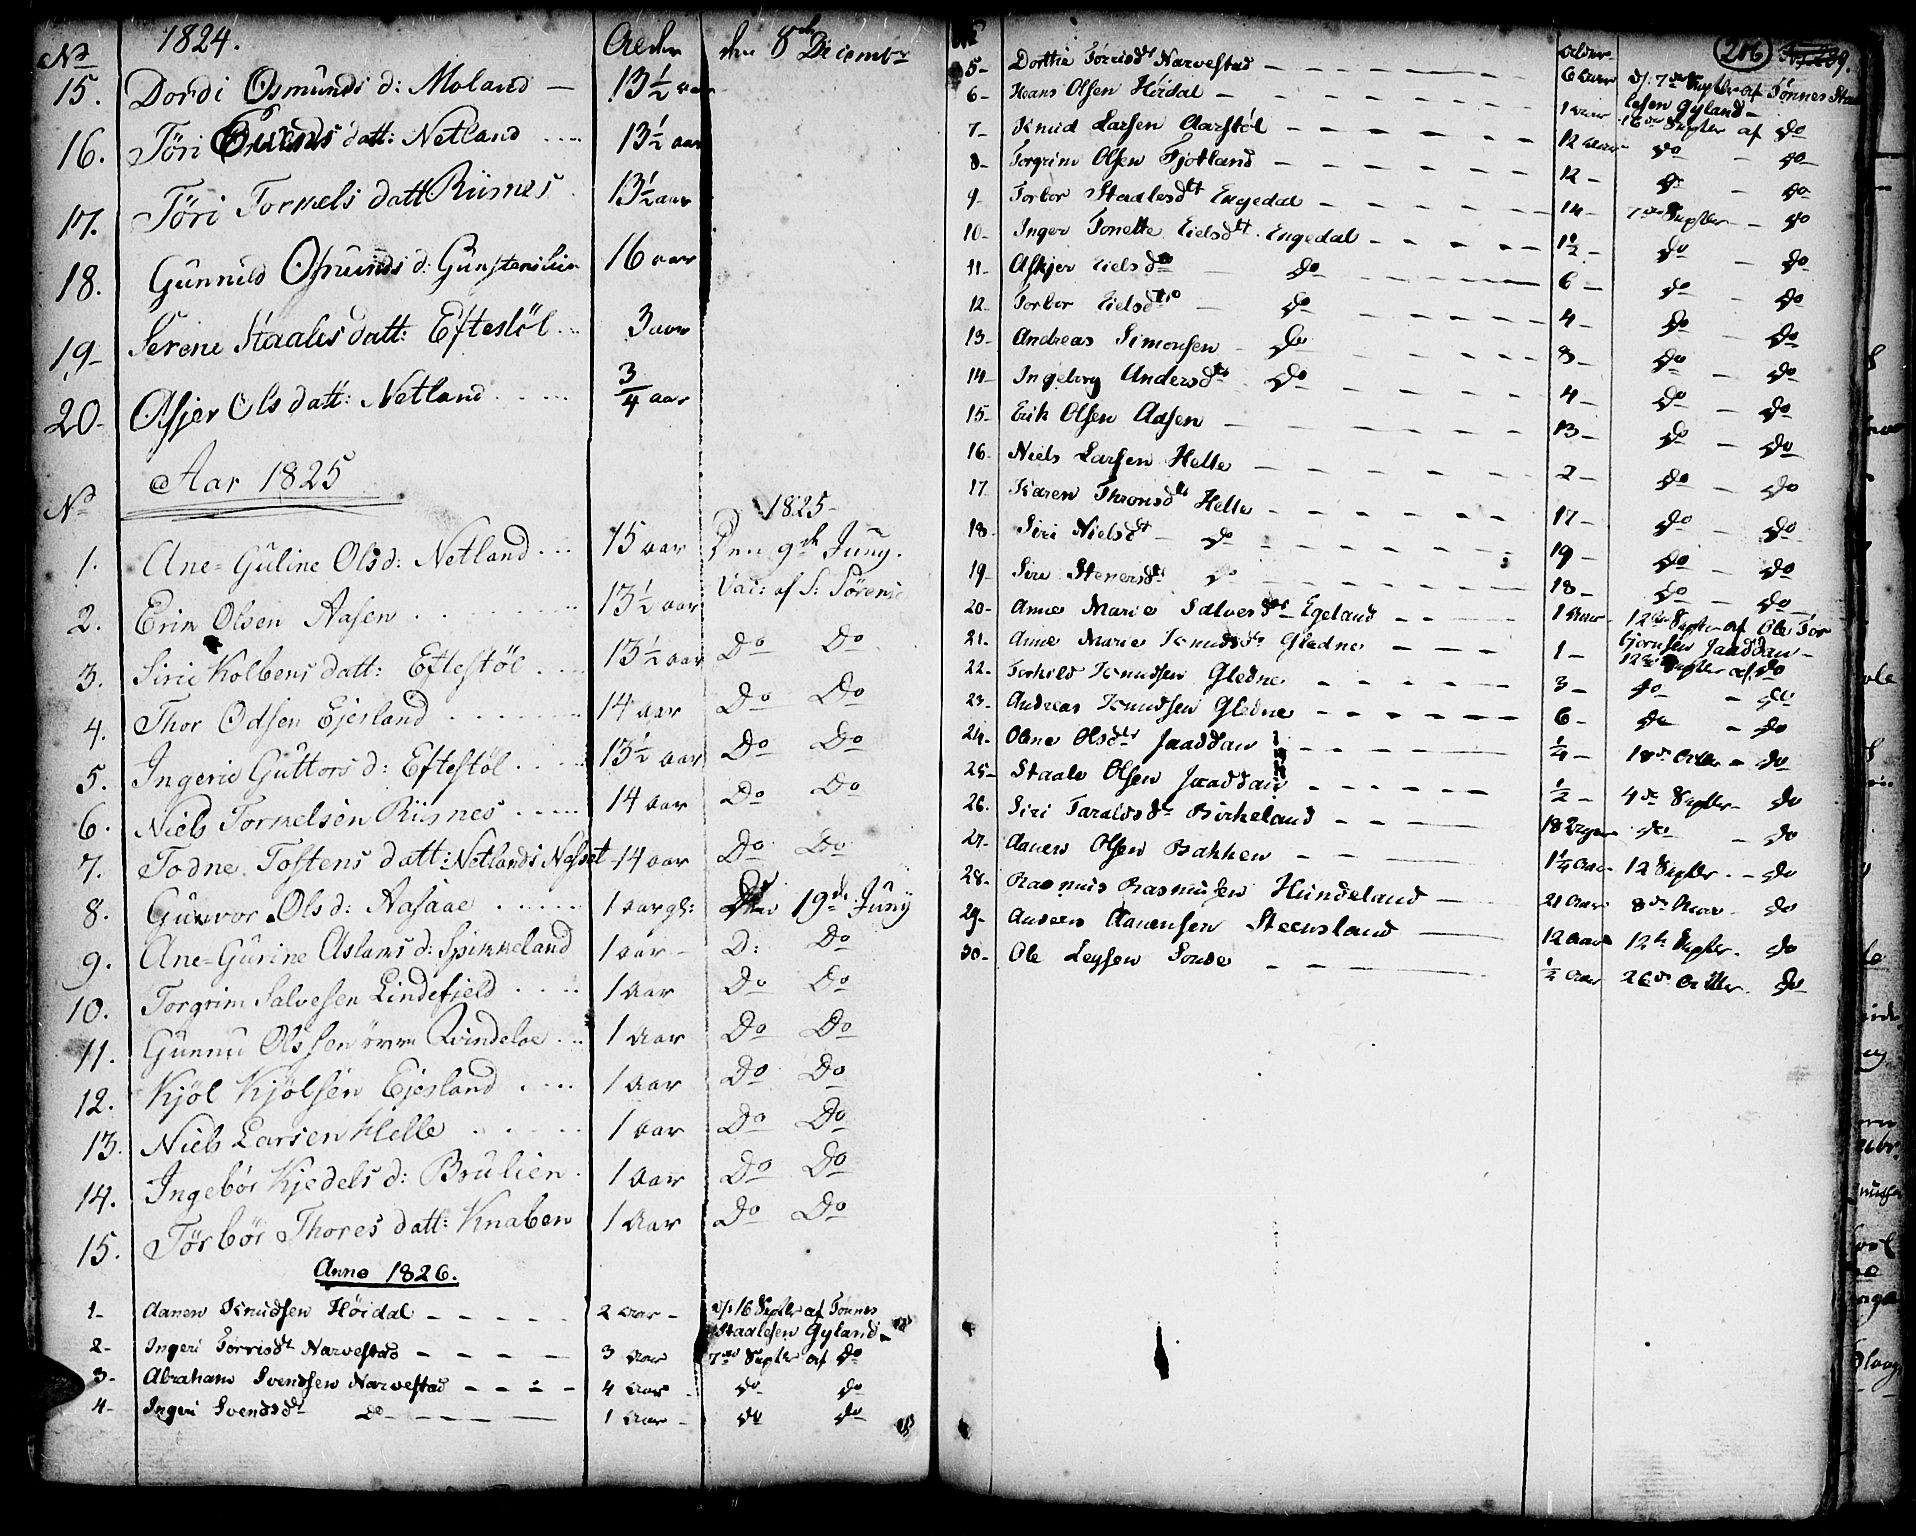 No 1824. Alder den 8de Decembr
15. Dordi Osmunds d: Moland — 13½ aar
16. Töri datt: Netland .... 13½ aar
17. Töri Tormels datt Riisnes . 13½ aar
18. Gunnild Osmunds d: 16 aar
19- Serene Staales datt: Eftestöl ... 3 aar
20- Asjer Ols datt: Netland ..... 3/4 aar
Aar 1825
No 1825-
1. Ane-Guline Olsd: Netland ... 15 aar Den 9de Juny.
2. Erik Olsen Aasen 13½ aar Vac: af S: Sörens
3. Sirie Kolbens datt: Eftestöl 13½ aar Do Do
4. Thor Odsen Ejesland 14 aar Do Do
5. Ingerie Guttors d: Eftestöl .... 13½ aar Do Do
6. Niels Tormelsen Riisnes ..... 14 aar Do Do
7. Todne Tostens datt: Netlands Neset 14 aar Do Do
8. Gunvor Ols d: Aasaae ..... 1 aar gl: Den 19de Juny
9. Ane-Gurine Aslaks d: Spikkeland 1 aar - D: Do
10. Torgrim Salvesen Lindefjeld .... 1 Aar Do Do
11. Gunnu Olssen övre Qvindeloe ... 1 Aar Do Do
12. Kjöl Kjölsen Ejesland .... 1 Aar Do Do
13. Niels Larsen Helle 1 Aar Do Do
14. Ingebör Kjedels d: Brulien . 1 Aar Do Do
15. Törbör Thores datt: Knaben 1 Aar Do Do
Anno 1826.
1- Aanen Knudsen Höidal - - - - - 2 Aar - d/: 16 Septbr af Tönnes
Staalesen Gyland -
2- Ingeri Torrisdt Narvestad - - - - 3 Aar 7de Septbr af Do
3- Abraham Svendsen Narvestad - - - - 4 Aar - do do
4- Ingeri Svendsdt Do - - - - 1 Aar - do do
No Alder 206 Fol 239.
5- Dorthe Torrisdt Narvestad - - - - 6 Aar d/. 7de Septbr af Tönnes Staa
lesen Gyland -
6- Hans Olsen Höidal - - - - 1 Aar 16de Septbr af do
7- Knud Larsen Aarstöl - - - - 12 Aar do - do
8- Torgrim Olsen Fjotland - - - - 12 - do - do
9- Torbor Staalesdtt Engedal - - - - 14 - 7de Septbr - do
10- Inger Tonette Eielsdtt Engedal - - - - 1½ - do - do
11- Askjer Eielsdtr - do - - - 6 - do - do
12. Torbor Eielsdtr - do - - - 4 - do - do
13- Andreas Simonsen - do - - - 8 - do - do
14- Ingeborg Andersdtr do - - - 4 - do - do
15- Erik Olsen Aasen - - - - 13 - do - do
16- Niels Larsen Helle - - - - 2 - do - do
17 Karen Thronsdtr Helle - - - - 17 - do - do
18- Siri Nielsdt - do - - - 19 - do - do
19- Sire Stenersdt do - - - 18 - do - do
20- Anne Marie Salvesdtr Egeland - - - - 1 Aar 12te Septbr af Ole Tor
bjornsen Jaaddan -
21. Anne Marie Knudsdtr Gledne - - - - 1 - 12te Septbr af do
22. Torkild Knudsen Gledne - - - - 3 - do - do
23- Andreas Knudsen Gledne - - - - 6 - do - do
24- Olene Olsdtr Jaaddan - - - - ¼ - 18de Octbr - do
25- Staale Olsen Jaaddan - - - - ½ - 4de Septbr - do
26. Siri Taraldsdtr Birkeland - - - 18 Uger do - do
27- Aanen Olsen Bakken - - - 1¼ Aar 12 Septbr - do
28- Rasmus Rasmusen Hundeland - 21 Aar 8de Mar - do
29- Anders Aanensen Steensland - 12 Aar 12te Septbr. do
30- Ole Leysen Sonde - - - ½ Aar 26de Octbr. do